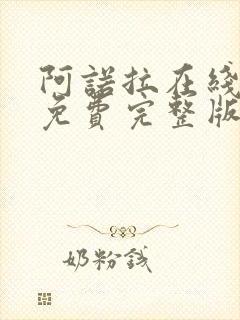 阿諾拉在线
免費完整版
奶粉錢